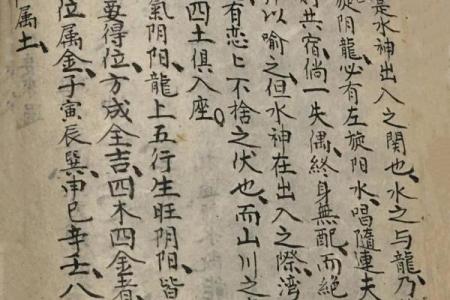 臺水神出入之関也、水之与龍、乃
旋阴龍、必有左旋阳水、唱隨連夫
共、宿、倘一失偶、終身無配、而絶
所以喻之、但水神在出入之際、湾
有恋上不捨之伏也、而山川之
四土俱入座。
氣阴阳、龍上五行生旺阴阳、皆
要得位、方成全吉、四木四金者、
位属金、子寅辰巽、申巳辛壬、八
属土、